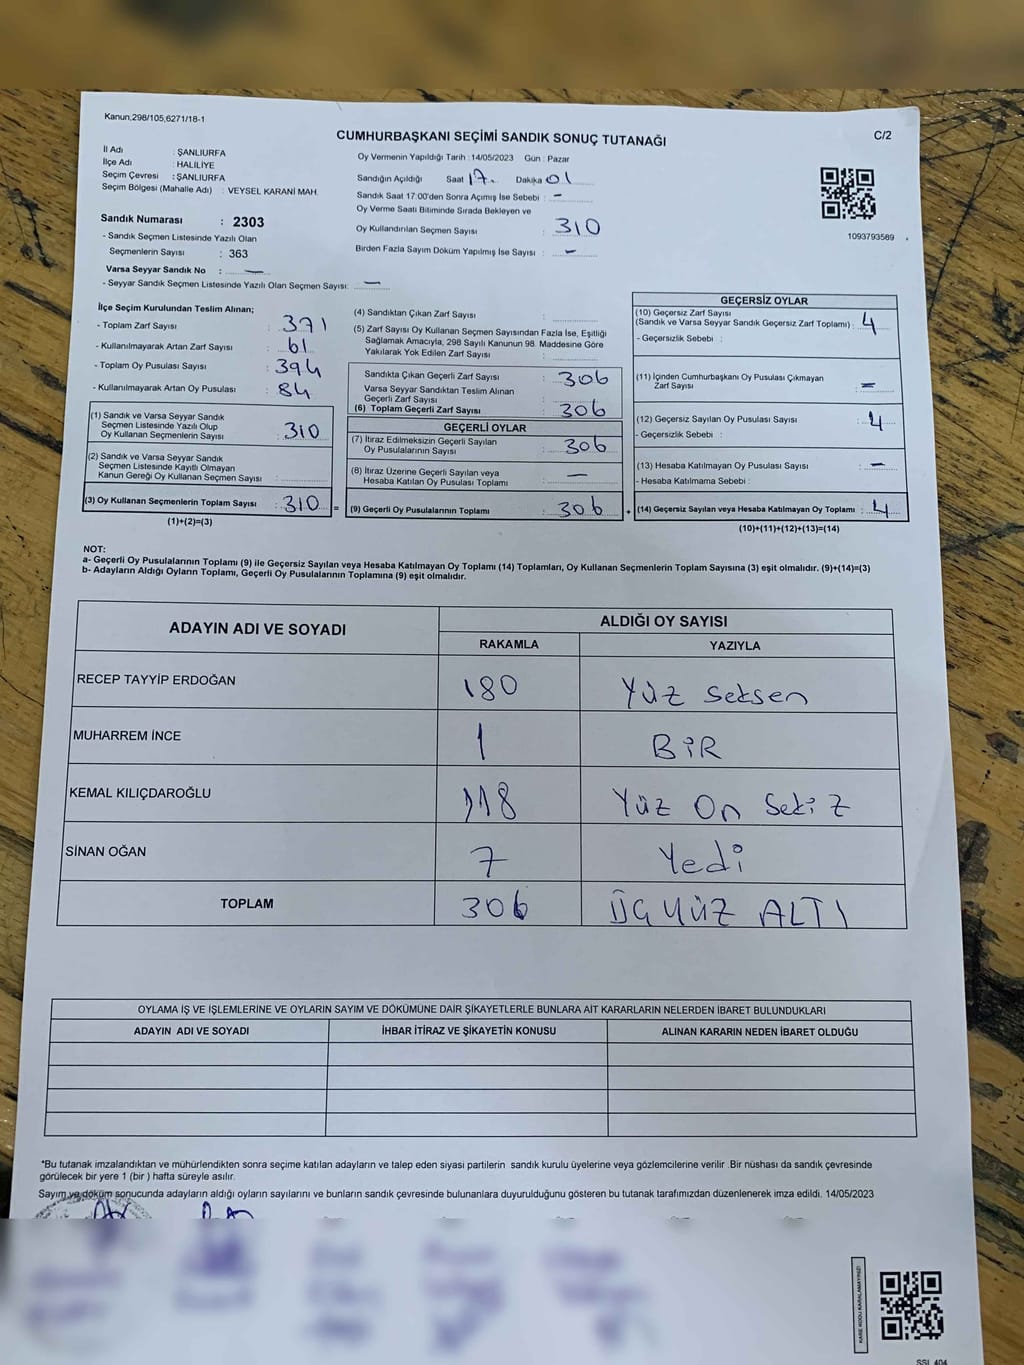 Kanun,298/105,6271/18-1
CUMHURBAŞKANI SEÇİMİ SANDIK SONUÇ TUTANAĞI
C/2
İl Adı : ŞANLIURFA
İlçe Adı : HALİLİYE
Seçim Çevresi : ŞANLIURFA
Seçim Bölgesi (Mahalle Adı) : VEYSEL KARANİ MAH.
Sandık Numarası : 2303
- Sandık Seçmen Listesinde Yazılı Olan
Seçmenlerin Sayısı : 363
Varsa Seyyar Sandık No : —
- Seyyar Sandık Seçmen Listesinde Yazılı Olan Seçmen Sayısı: —
Oy Vermenin Yapıldığı Tarih : 14/05/2023 Gün : Pazar
Sandığın Açıldığı Saat 17. Dakika 01
Sandık Saat 17:00'den Sonra Açımış İse Sebebi : -
Oy Verme Saati Bitiminde Sırada Bekleyen ve
Oy Kullandırılan Seçmen Sayısı : 310
Birden Fazla Sayım Döküm Yapılmış İse Sayısı : —
1093793589
İlçe Seçim Kurulundan Teslim Alınan;
- Toplam Zarf Sayısı : 371
- Kullanılmayarak Artan Zarf Sayısı : 61
- Toplam Oy Pusulası Sayısı : 394
- Kullanılmayarak Artan Oy Pusulası : 84
(1) Sandık ve Varsa Seyyar Sandık
Seçmen Listesinde Yazılı Olup
Oy Kullanan Seçmenlerin Sayısı : 310
(2) Sandık ve Varsa Seyyar Sandık
Seçmen Listesinde Kayıtlı Olmayan
Kanun Gereği Oy Kullanan Seçmen Sayısı :
(3) Oy Kullanan Seçmenlerin Toplam Sayısı : 310 =
(1)+(2)=(3)
(4) Sandıktan Çıkan Zarf Sayısı :
(5) Zarf Sayısı Oy Kullanan Seçmen Sayısından Fazla İse, Eşitliği
Sağlamak Amacıyla, 298 Sayılı Kanunun 98. Maddesine Göre
Yakılarak Yok Edilen Zarf Sayısı :
Sandıkta Çıkan Geçerli Zarf Sayısı : 306
Varsa Seyyar Sandıktan Teslim Alınan
Geçerli Zarf Sayısı :
(6) Toplam Geçerli Zarf Sayısı : 306
GEÇERLİ OYLAR
(7) İtiraz Edilmeksizin Geçerli Sayılan
Oy Pusulalarının Sayısı : 306
(8) İtiraz Üzerine Geçerli Sayılan veya
Hesaba Katılan Oy Pusulası Toplamı : —
(9) Geçerli Oy Pusulalarının Toplamı : 306 +
GEÇERSİZ OYLAR
(10) Geçersiz Zarf Sayısı
(Sandık ve Varsa Seyyar Sandık Geçersiz Zarf Toplamı) : 4
- Geçersizlik Sebebi :
(11) İçinden Cumhurbaşkanı Oy Pusulası Çıkmayan
Zarf Sayısı : =
(12) Geçersiz Sayılan Oy Pusulası Sayısı : 4
- Geçersizlik Sebebi :
(13) Hesaba Katılmayan Oy Pusulası Sayısı : —
- Hesaba Katılmama Sebebi :
(14) Geçersiz Sayılan veya Hesaba Katılmayan Oy Toplamı : 4
(10)+(11)+(12)+(13)=(14)
NOT:
a- Geçerli Oy Pusulalarının Toplamı (9) ile Geçersiz Sayılan veya Hesaba Katılmayan Oy Toplamı (14) Toplamları, Oy Kullanan Seçmenlerin Toplam Sayısına (3) eşit olmalıdır. (9)+(14)=(3)
b- Adayların Aldığı Oyların Toplamı, Geçerli Oy Pusulalarının Toplamına (9) eşit olmalıdır.
ADAYIN ADI VE SOYADI
ALDIĞI OY SAYISI
RAKAMLA YAZIYLA
RECEP TAYYİP ERDOĞAN 180 Yüz Seksen
MUHARREM İNCE 1 BİR
KEMAL KILIÇDAROĞLU 118 Yüz On Sekiz
SİNAN OĞAN 7 Yedi
TOPLAM 306 ÜÇ YÜZ ALTI
OYLAMA İŞ VE İŞLEMLERİNE VE OYLARIN SAYIM VE DÖKÜMÜNE DAİR ŞİKAYETLERLE BUNLARA AİT KARARLARIN NELERDEN İBARET BULUNDUKLARI
ADAYIN ADI VE SOYADI İHBAR İTİRAZ VE ŞİKAYETİN KONUSU ALINAN KARARIN NEDEN İBARET OLDUĞU
*Bu tutanak imzalandıktan ve mühürlendikten sonra seçime katılan adayların ve talep eden siyasi partilerin sandık kurulu üyelerine veya gözlemcilerine verilir .Bir nüshası da sandık çevresinde
görülecek bir yere 1 (bir ) hafta süreyle asılır.
Sayım ve döküm sonucunda adayların aldığı oyların sayılarını ve bunların sandık çevresinde bulunanlara duyurulduğunu gösteren bu tutanak tarafımızdan düzenlenerek imza edildi. 14/05/2023
KARE KODU KARALAMAYINIZ!